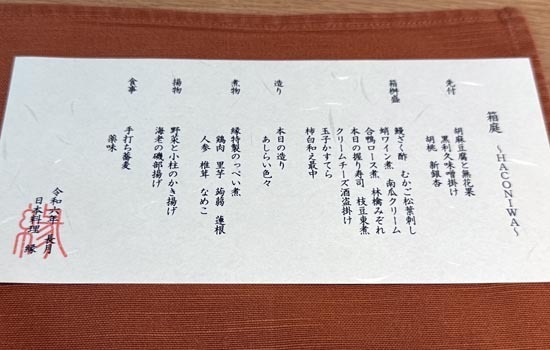 箱庭 ～HACONIWA～
先付
胡麻豆腐と無花果
黒利久味噌掛け
胡桃 新銀杏
箱桝盛
鰻ざく酢 むかご松葉刺し
蛸ワイン煮 南瓜クリーム
合鴨ロース煮 林檎みぞれ
本日の握り寿司 枝豆東煮
クリームチーズ酒盗掛け
玉子かすてら
柿白和え最中
造り
本日の造り
あしらい色々
煮物
縁特製のっぺい煮
鶏肉 里芋 蒟蒻 蓮根
人参 椎茸 なめこ
揚物
野菜と小柱のかき揚げ
海老の磯部揚げ
食事
手打ち蕎麦
薬味
令和六年 長月
日本料理 縁
縁